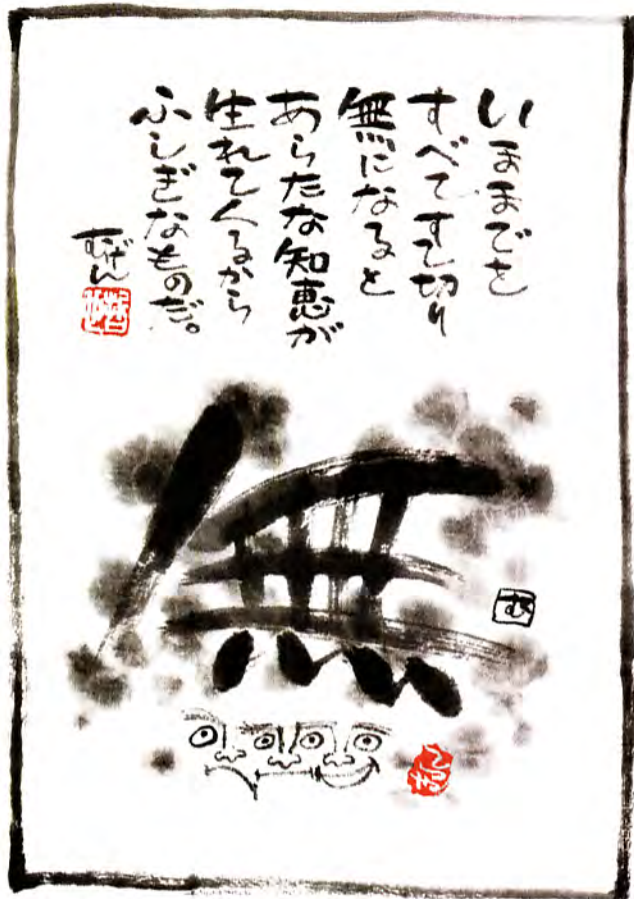 いままでを
すべてすて切り
無になると
あらたな知恵が
生れてくるから
ふしぎなものだ。
むげん
無
む